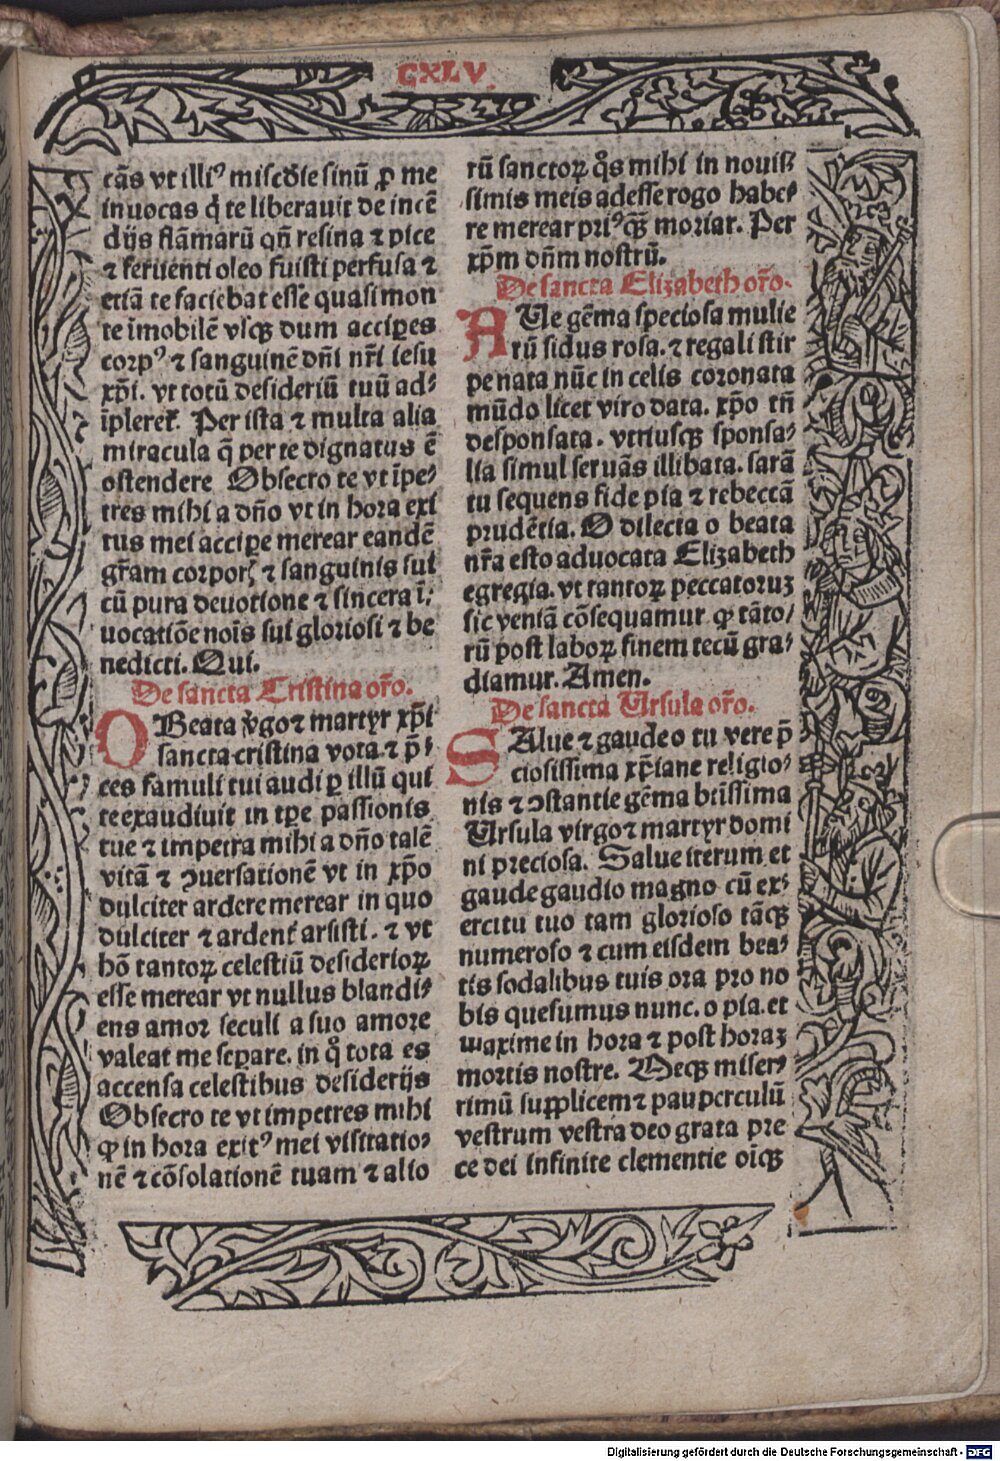 CXLV
cãs vt illiꝰ misc̃die sinũ ꝓ me
inuocas q̇ te liberauit de incẽ
dijs flãmarũ qñ resina ⁊ pice
⁊ feruenti oleo fuisti perfusa ⁊
etiã te faciebat esse quasi mon
te ĩmobilẽ vsqꝫ dum accipꝫes
corpꝰ ⁊ sanguinẽ dñi nr̃i iesu
xp̃i. vt totũ desideriũ tuũ ad⸗
ĩpleret᷑. Per ista ⁊ multa alia
miracula q̃ per te dignatus ẽ
ostendere Obsecro te vt ĩpe⸗
tres mihi a dño vt in hora exi
tus mei accipe merear eandẽ
gr̃am corporꝭ ⁊ sanguinis sui
cũ pura deuotione ⁊ sincera ĩ⸗
uocatiõe noĩs sui gloriosi ⁊ be
nedicti. Qui.
De sancta Cristina or̃o.
O Beata v̇go ⁊ martyr xp̃i
sancta cristina vota ⁊ p̃⸗
ces famuli tui audi ꝑ illũ qui
te exaudiuit in tꝑe passionis
tue ⁊ impetra mihi a dño talẽ
vitã ⁊ ꝯuersationẽ vt in xp̃o
dulciter ardere merear in quo
dulciter ⁊ ardent᷑ arsisti. ⁊ vt
hõ tantoꝝ celestiũ desiderioꝝ
esse merear vt nullus blandi⸗
ens amor seculi a suo amore
valeat me sepꝑare. in q̊ tota es
accensa celestibus desiderijs
Obsecro te vt impetres mihi
ꝙ in hora exitꝰ mei visitatio⸗
nẽ ⁊ cõsolationẽ tuam ⁊ alio
rũ sanctoꝝ q̊s mihi in nouis⸗
simis meis adesse rogo habe⸗
re merear priꝰqꝫ̃ moriar. Per
xp̃m dñm nostrũ.
De sancta Elizabeth or̃o.
AUe gẽma speciosa mulie
rũ sidus rosa. ⁊ regali stir
pe nata nũc in celis coronata
mũdo licet viro data. xp̃o tñ
desponsata. vtriusqꝫ sponsa⸗
lia simul seruãs illibata. sarã
tu sequens fide pia ⁊ rebeccã
prudẽtia. O dilecta o beata
nr̃a esto aduocata Elizabeth
egregia. vt tantoꝝ peccatoruꝫ
sic veniã cõsequamur ꝙ tãto⸗
rũ post laboꝝ finem tecũ gra⸗
diamur. Amen.
De sancta Ursula or̃o.
SAlue ⁊ gaude o tu vere p̃
ciosissima xp̃iane religio⸗
nis ⁊ ꝯstantie gẽma btĩssima
Ursula virgo ⁊ martyr domi
ni preciosa. Salue iterum et
gaude gaudio magno cũ ex⸗
ercitu tuo tam glorioso tãqꝫ
numeroso ⁊ cum eisdem bea⸗
tis sodalibus tuis ora pro no
bis quesumus nunc. o pia. et
maxime in hora ⁊ post horaꝫ
mortis nostre. Mecqꝫ miser⸗
rimũ supplicem ⁊ pauperculũ
vestrum vestra deo grata pre
ce dei infinite clementie oĩqꝫ
Digitalisierung gefördert durch die Deutsche Forschungsgemeinschaft - DFG